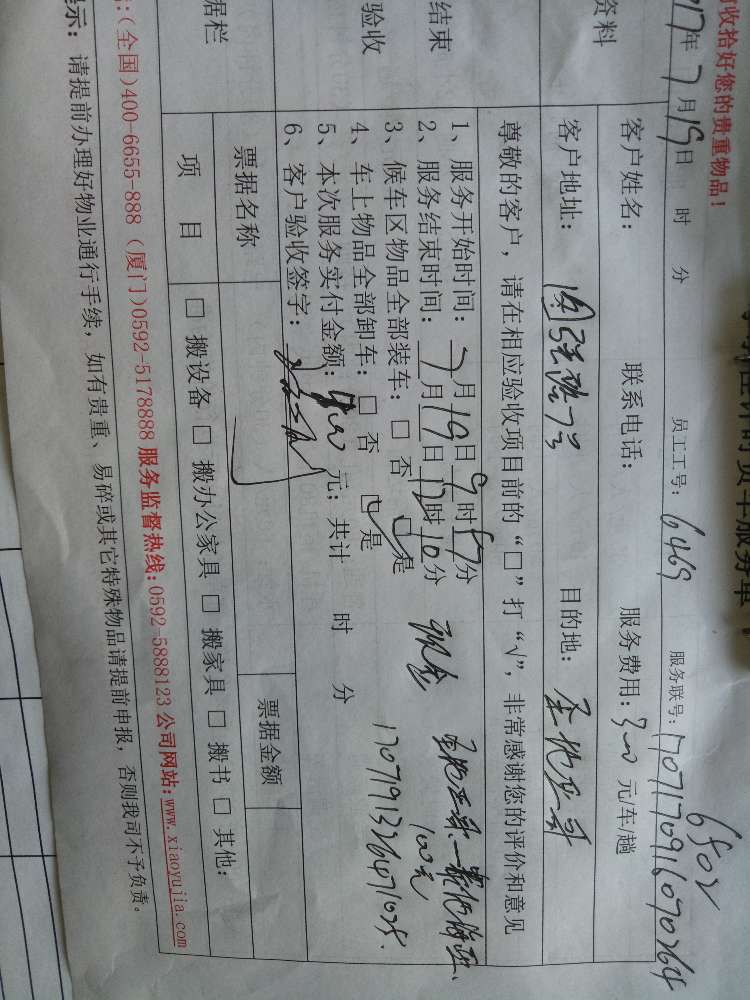 收拾好您的贵重物品!
17年7月19日 时 分
员工工号: 6469 服务联号: 1707170916070264
6802
资料
客户姓名: 联系电话: 服务费用: 300 元/车/趟
客户地址: 目的地:
结束
验收
尊敬的客户,请在相应验收项目前的“□”打“√”,非常感谢您的评价和意见
1、服务开始时间: 7月19日9时 分
2、服务结束时间: 7月19日12时10分 现金
3、候车区物品全部装车: □ 否 ☑ 是
100元
4、车上物品全部卸车: □ 否 ☑ 是
5、本次服务实付金额: 400 元; 共计 时 分
6、客户验收签字:
据栏
票据名称 票据金额
项 目 □ 搬设备 □ 搬办公家具 □ 搬家具 □ 搬书 □ 其他:
:(全国)400-6655-888 (厦门)0592-5178888 服务监督热线:0592-5888123 公司网站:www.xiaoyujia.com
示: 请提前办理好物业通行手续,如有贵重、易碎或其它特殊物品请提前申报,否则我司不予负责。